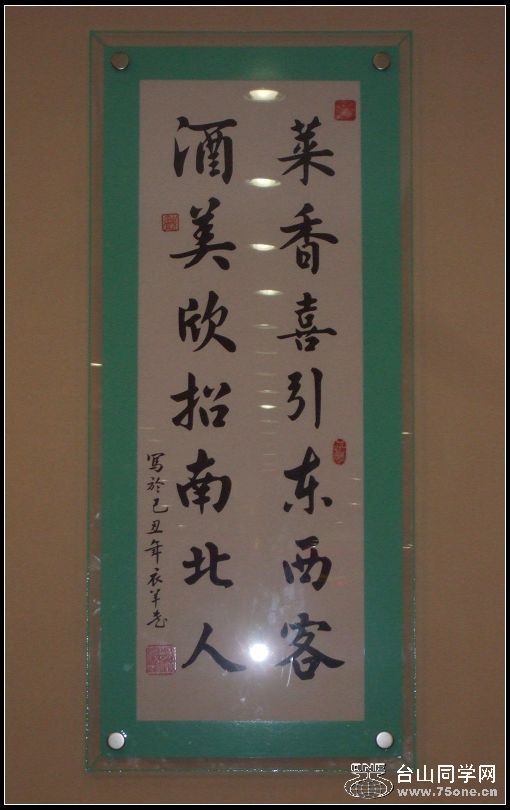 菜香喜引东西客
酒美欣招南北人
寫於己丑年
台山同学网
www.75one.cn